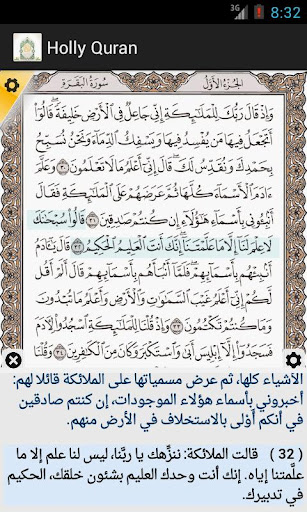 3G 8:32
Holly Quran
سُورَةُ البَقَرَةِ الجُزءُ الأَوَّلُ
وَإِذْ قَالَ رَبُّكَ لِلْمَلَٰٓئِكَةِ إِنِّي جَاعِلٌ فِي ٱلْأَرْضِ خَلِيفَةً ۖ قَالُوٓا۟
أَتَجْعَلُ فِيهَا مَن يُفْسِدُ فِيهَا وَيَسْفِكُ ٱلدِّمَآءَ وَنَحْنُ نُسَبِّحُ
بِحَمْدِكَ وَنُقَدِّسُ لَكَ ۖ قَالَ إِنِّيٓ أَعْلَمُ مَا لَا تَعْلَمُونَ ٣٠ وَعَلَّمَ
ءَادَمَ ٱلْأَسْمَآءَ كُلَّهَا ثُمَّ عَرَضَهُمْ عَلَى ٱلْمَلَٰٓئِكَةِ فَقَالَ
أَنۢبِـُٔونِي بِأَسْمَآءِ هَٰٓؤُلَآءِ إِن كُنتُمْ صَٰدِقِينَ ٣١ قَالُوا۟ سُبْحَٰنَكَ
لَا عِلْمَ لَنَآ إِلَّا مَا عَلَّمْتَنَآ ۖ إِنَّكَ أَنتَ ٱلْعَلِيمُ ٱلْحَكِيمُ ٣٢ قَالَ يَٰٓـَٔادَمُ
أَنۢبِئْهُم بِأَسْمَآئِهِمْ ۖ فَلَمَّآ أَنۢبَأَهُم بِأَسْمَآئِهِمْ قَالَ أَلَمْ أَقُل
لَّكُمْ إِنِّيٓ أَعْلَمُ غَيْبَ ٱلسَّمَٰوَٰتِ وَٱلْأَرْضِ وَأَعْلَمُ مَا تُبْدُونَ
وَمَا كُنتُمْ تَكْتُمُونَ ٣٣ وَإِذْ قُلْنَا لِلْمَلَٰٓئِكَةِ ٱسْجُدُوا۟ لِـَٔادَمَ
فَسَجَدُوٓا۟ إِلَّآ إِبْلِيسَ أَبَىٰ وَٱسْتَكْبَرَ وَكَانَ مِنَ ٱلْكَٰفِرِينَ ٣٤ وَقُلْنَا
الأشياء كلها، ثم عرض مسمياتها على الملائكة قائلا لهم:
أخبروني بأسماء هؤلاء الموجودات، إن كنتم صادقين
في أنكم أَوْلى بالاستخلاف في الأرض منهم.
( 32 ) قالت الملائكة: ننزِّهك يا ربَّنا، ليس لنا علم إلا ما
علَّمتنا إياه. إنك أنت وحدك العليم بشئون خلقك، الحكيم
في تدبيرك.